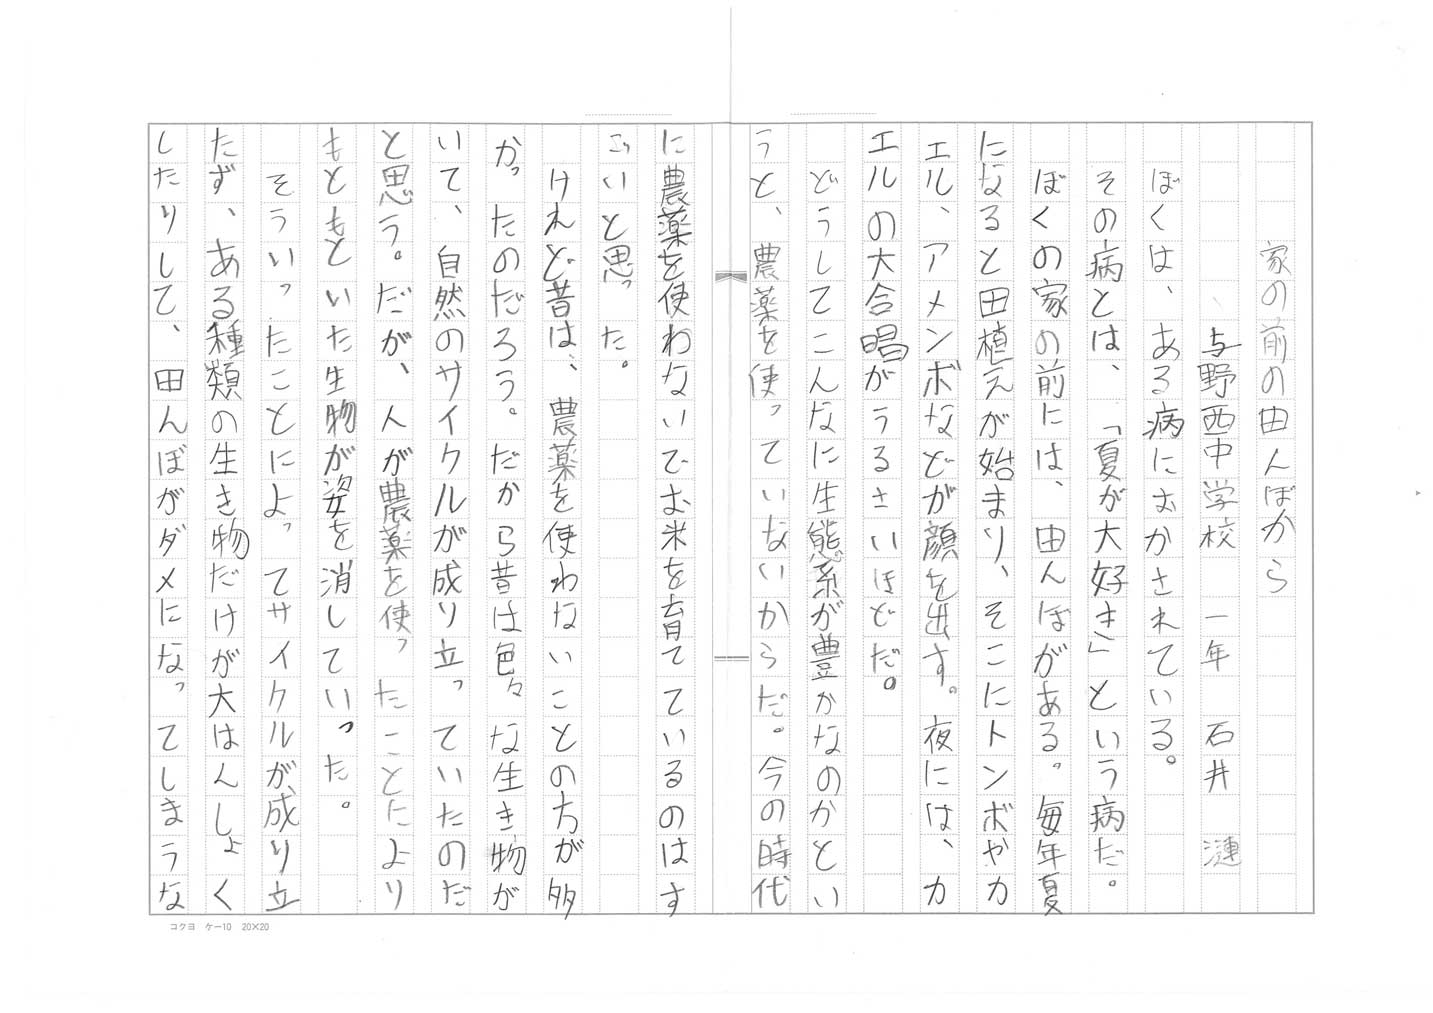 家の前の田んぼから
与野西中学校 一年 石井 漣
ぼくは、ある病におかされている。
その病とは、「夏が大好き」という病だ。
ぼくの家の前には、田んぼがある。毎年夏
になると田植えが始まり、そこにトンボやカ
エル、アメンボなどが顔を出す。夜には、カ
エルの大合唱がうるさいほどだ。
どうしてこんなに生態系が豊かなのかとい
うと、農薬を使っていないからだ。今の時代
に農薬を使わないでお米を育てているのはす
ごいと思った。
けれど昔は、農薬を使わないことの方が多
かったのだろう。だから昔は色々な生き物が
いて、自然のサイクルが成り立っていたのだ
と思う。だが、人が農薬を使ったことにより
もともといた生物が姿を消していった。
そういったことによってサイクルが成り立
たず、ある種類の生き物だけが大はんしょく
したりして、田んぼがダメになってしまうな
コクヨ ケー10 20×20